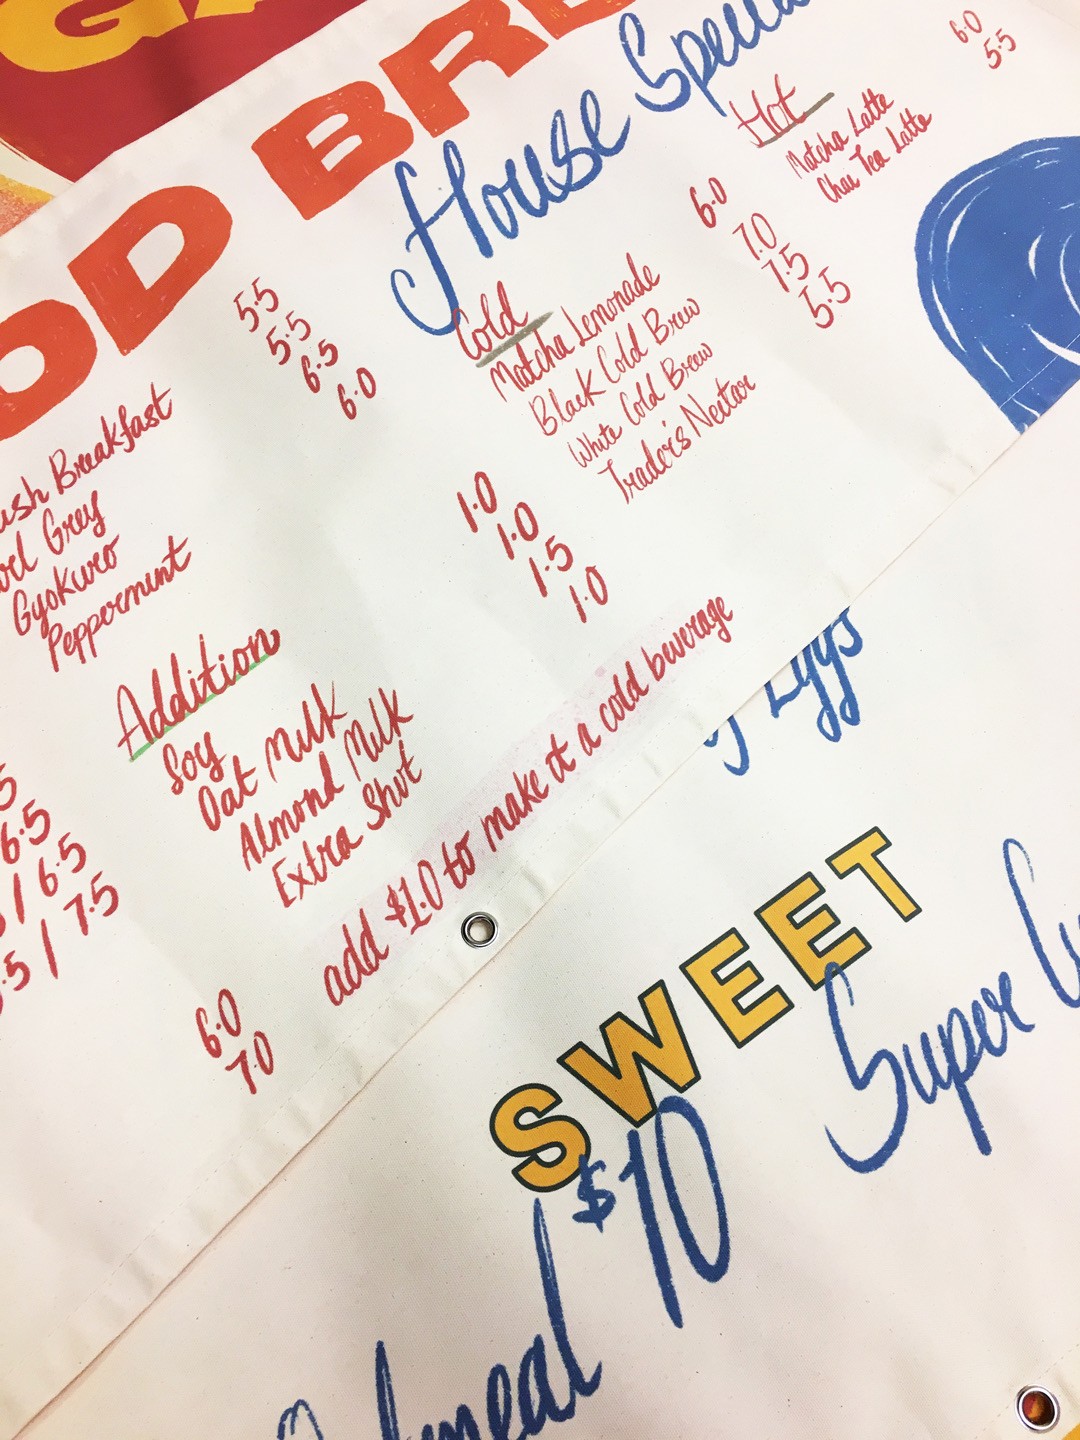 House
Hot
Matcha Latte 6.0
Chai Tea Latte 5.5
Cold
Matcha Lemonade 6.0
Black Cold Brew 7.0
White Cold Brew 7.5
Trador's Nectar 5.5
Breakfast 5.5
Grey 5.5
Gyokuro 6.5
Peppermint 6.0
Addition
Soy 1.0
Oat Milk 1.0
Almond Milk 1.5
Extra Shot 1.0
6.5
/ 6.5
/ 7.5
6.0
7.0
add $1.0 to make it a cold beverage
Eggs
SWEET
$10
Super